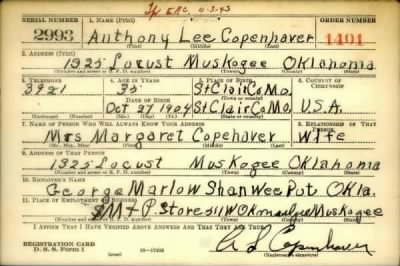 Tr. E.R.C. 4-3-43
SERIAL NUMBER 1. NAME (Print) ORDER NUMBER
2993 Anthony Lee Copenhaver 1401
(First) (Middle) (Last)
2. ADDRESS (Print)
1325 Locust Muskogee Oklahoma
(Number and street or R. F. D. number) (Town) (County) (State)
3. TELEPHONE 4. AGE IN YEARS 5. PLACE OF BIRTH 6. COUNTRY OF CITIZENSHIP
3921 35 St Clair Co Mo.
DATE OF BIRTH (Town or county)
Oct 27 1904 St Clair Co Mo. U.S.A.
(Mo.) (Day) (Yr.) (State or country)
7. NAME OF PERSON WHO WILL ALWAYS KNOW YOUR ADDRESS 8. RELATIONSHIP OF THAT PERSON
Mrs Margaret Copehaver Wife
(Mr., Mrs., Miss) (First) (Middle) (Last)
9. ADDRESS OF THAT PERSON
1325 Locust Muskogee Oklahoma
(Number and street or R. F. D. number) (Town) (County) (State)
10. EMPLOYER'S NAME
George Marlow Shanwee Put. Okla.
11. PLACE OF EMPLOYMENT OR BUSINESS
P. Store 511 W Okmulgee Muskogee
(Number and street or R. F. D. number) (Town) (County) (State)
I AFFIRM THAT I HAVE VERIFIED ABOVE ANSWERS AND THAT THEY ARE TRUE.
REGISTRATION CARD
D. S. S. Form 1 A L Copenhaver
(Registrant's signature)